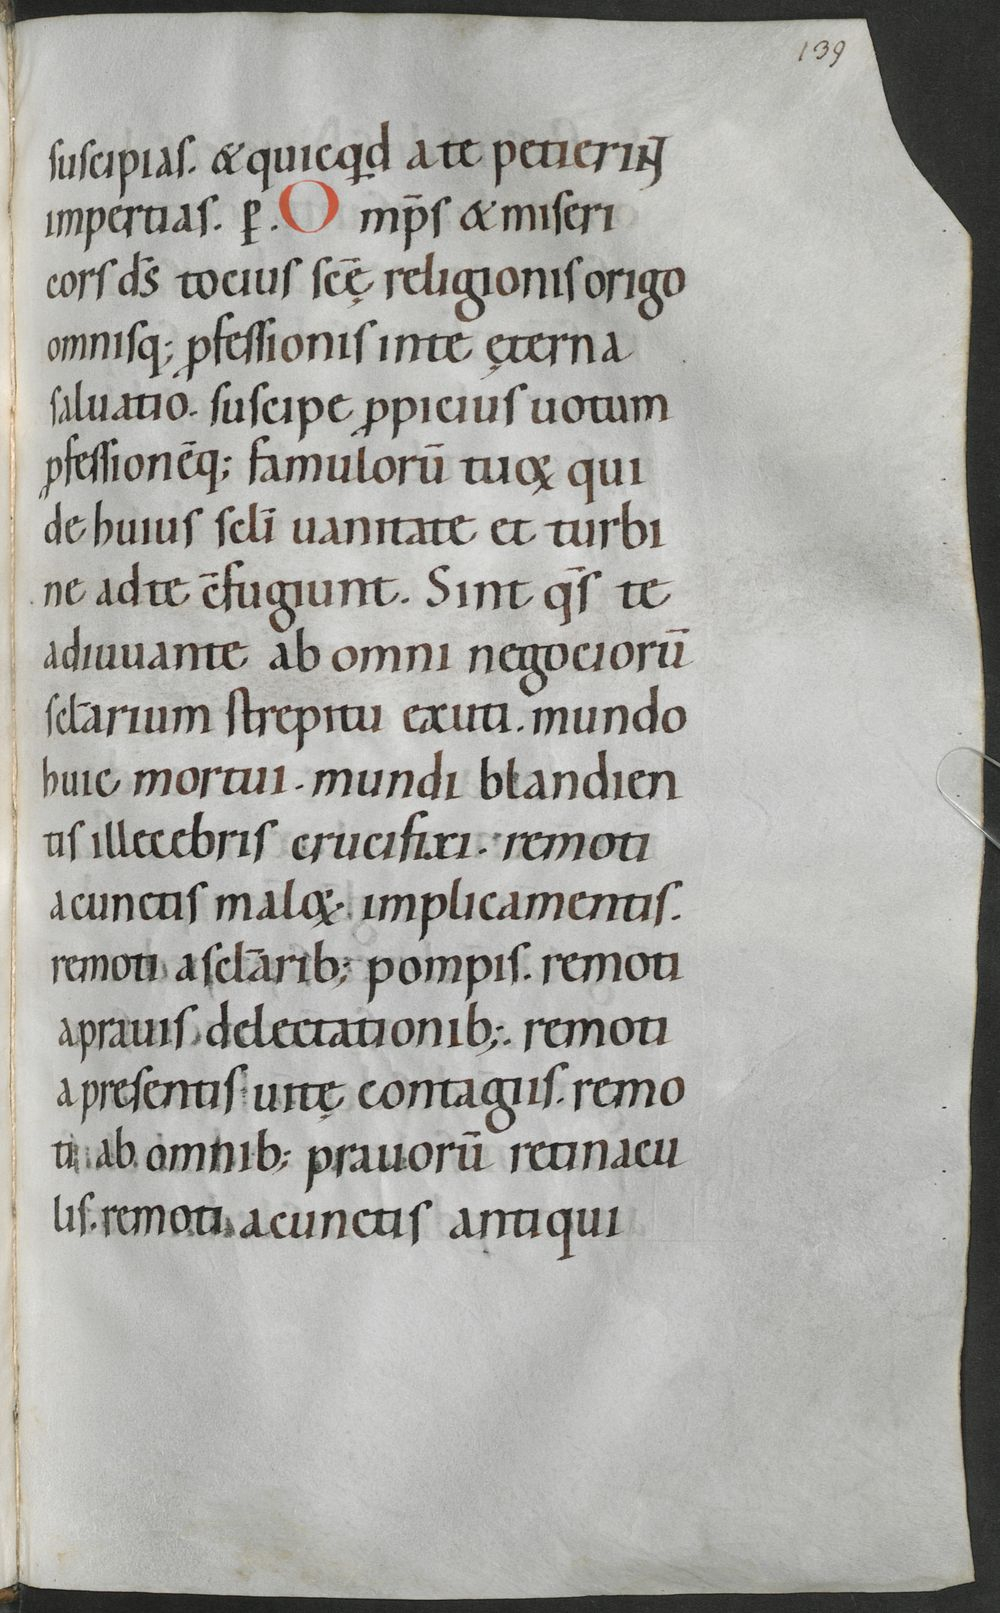 139
suscipias. & quicq̣d a te petierint
impertias. p̱. Omp̄s & miseri
cors d̄s tocius sc̄ę religionis origo
omnisq; ꝓfessionis in te ęterna
saluatio. suscipe ꝓpicius uotum
ꝓfessionēq; famulorū tuoꝝ qui
de huius sc̄li uanitate et turbi
ne ad te c̄fugiunt. Sint q̄s te
adiuuante ab omni negociorū
scl̄arium strepitu exuti. mundo
huic mortui. mundi blandien
tis illecebris crucifixi. remoti
a cunctis maloꝝ. implicamentis.
remoti a scl̄arib; pompis. remoti
a prauis delectationib;. remoti
a presentis uitę contagiis. remo
ti ab omnib; prauorū retinacu
lis. remoti a cunctis antiqui